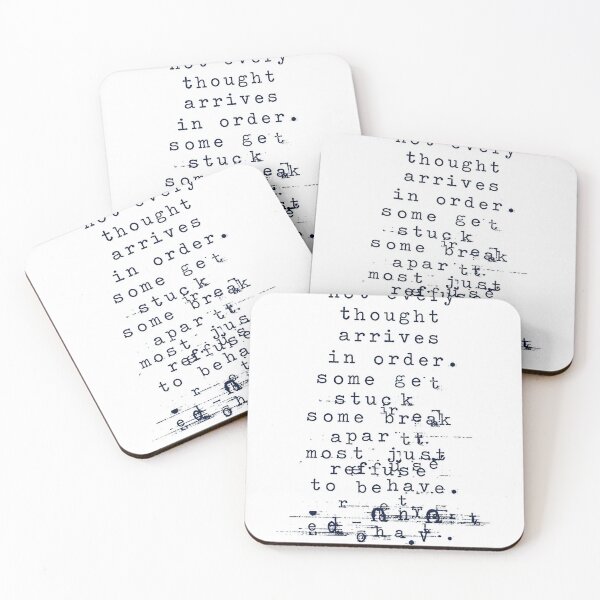 not every
thought
arrives
in order.
some get
stuck
not every
thought
arrives
in order.
some get
stuck
some break
apart
most just
refuse
not every
thought
arrives
in order.
some get
stuck
some break
apart
most just
refuse
to behave.
not every
thought
arrives
in order.
some get
stuck
some break
apart
most just
refuse
to behave.